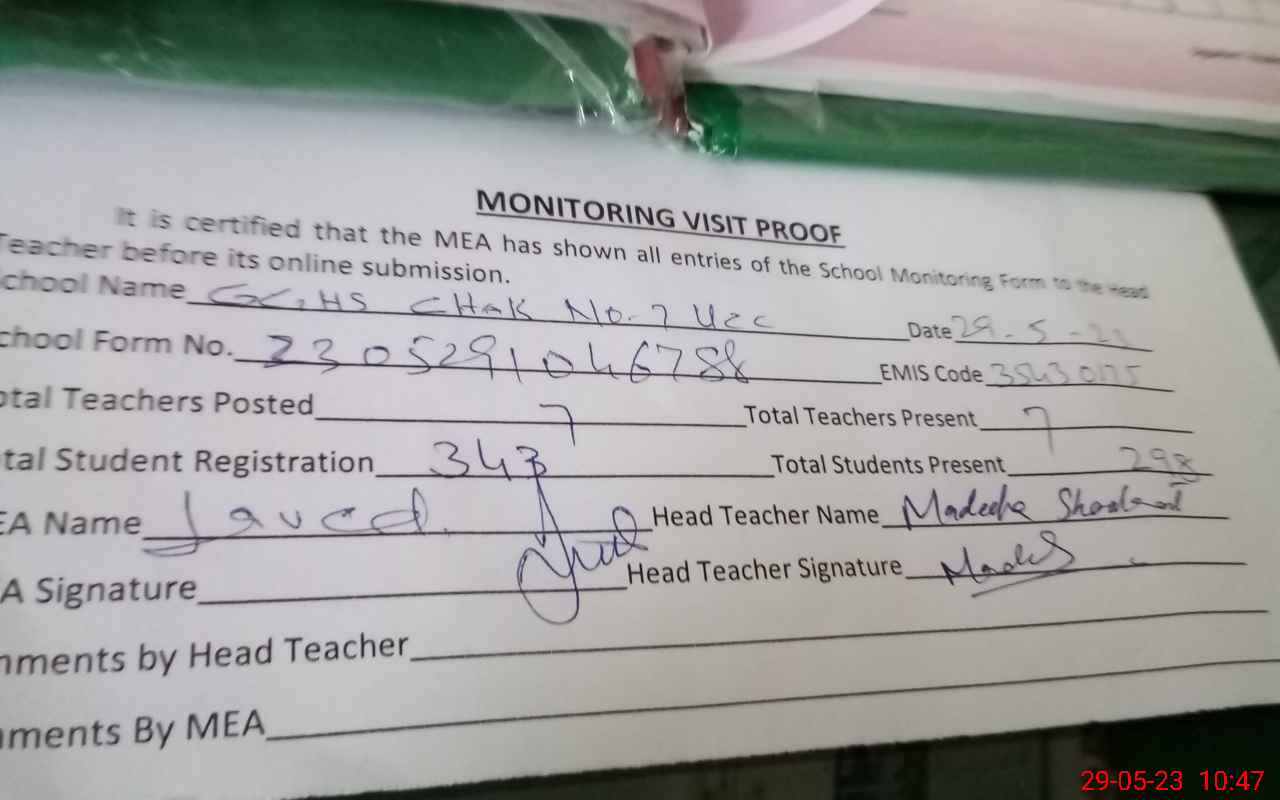 MONITORING VISIT PROOF
It is certified that the MEA has shown all entries of the School Monitoring Form to the Head
Teacher before its online submission.
chool Name GGHS CHAK No-7 UCC Date 29-5-
chool Form No. 2305291046788 EMIS Code 35430175
otal Teachers Posted 7 Total Teachers Present 7
tal Student Registration 343 Total Students Present 298
EA Name Javed. Head Teacher Name Madeeha
A Signature Head Teacher Signature
mments by Head Teacher
mments By MEA
29-05-23 10:47